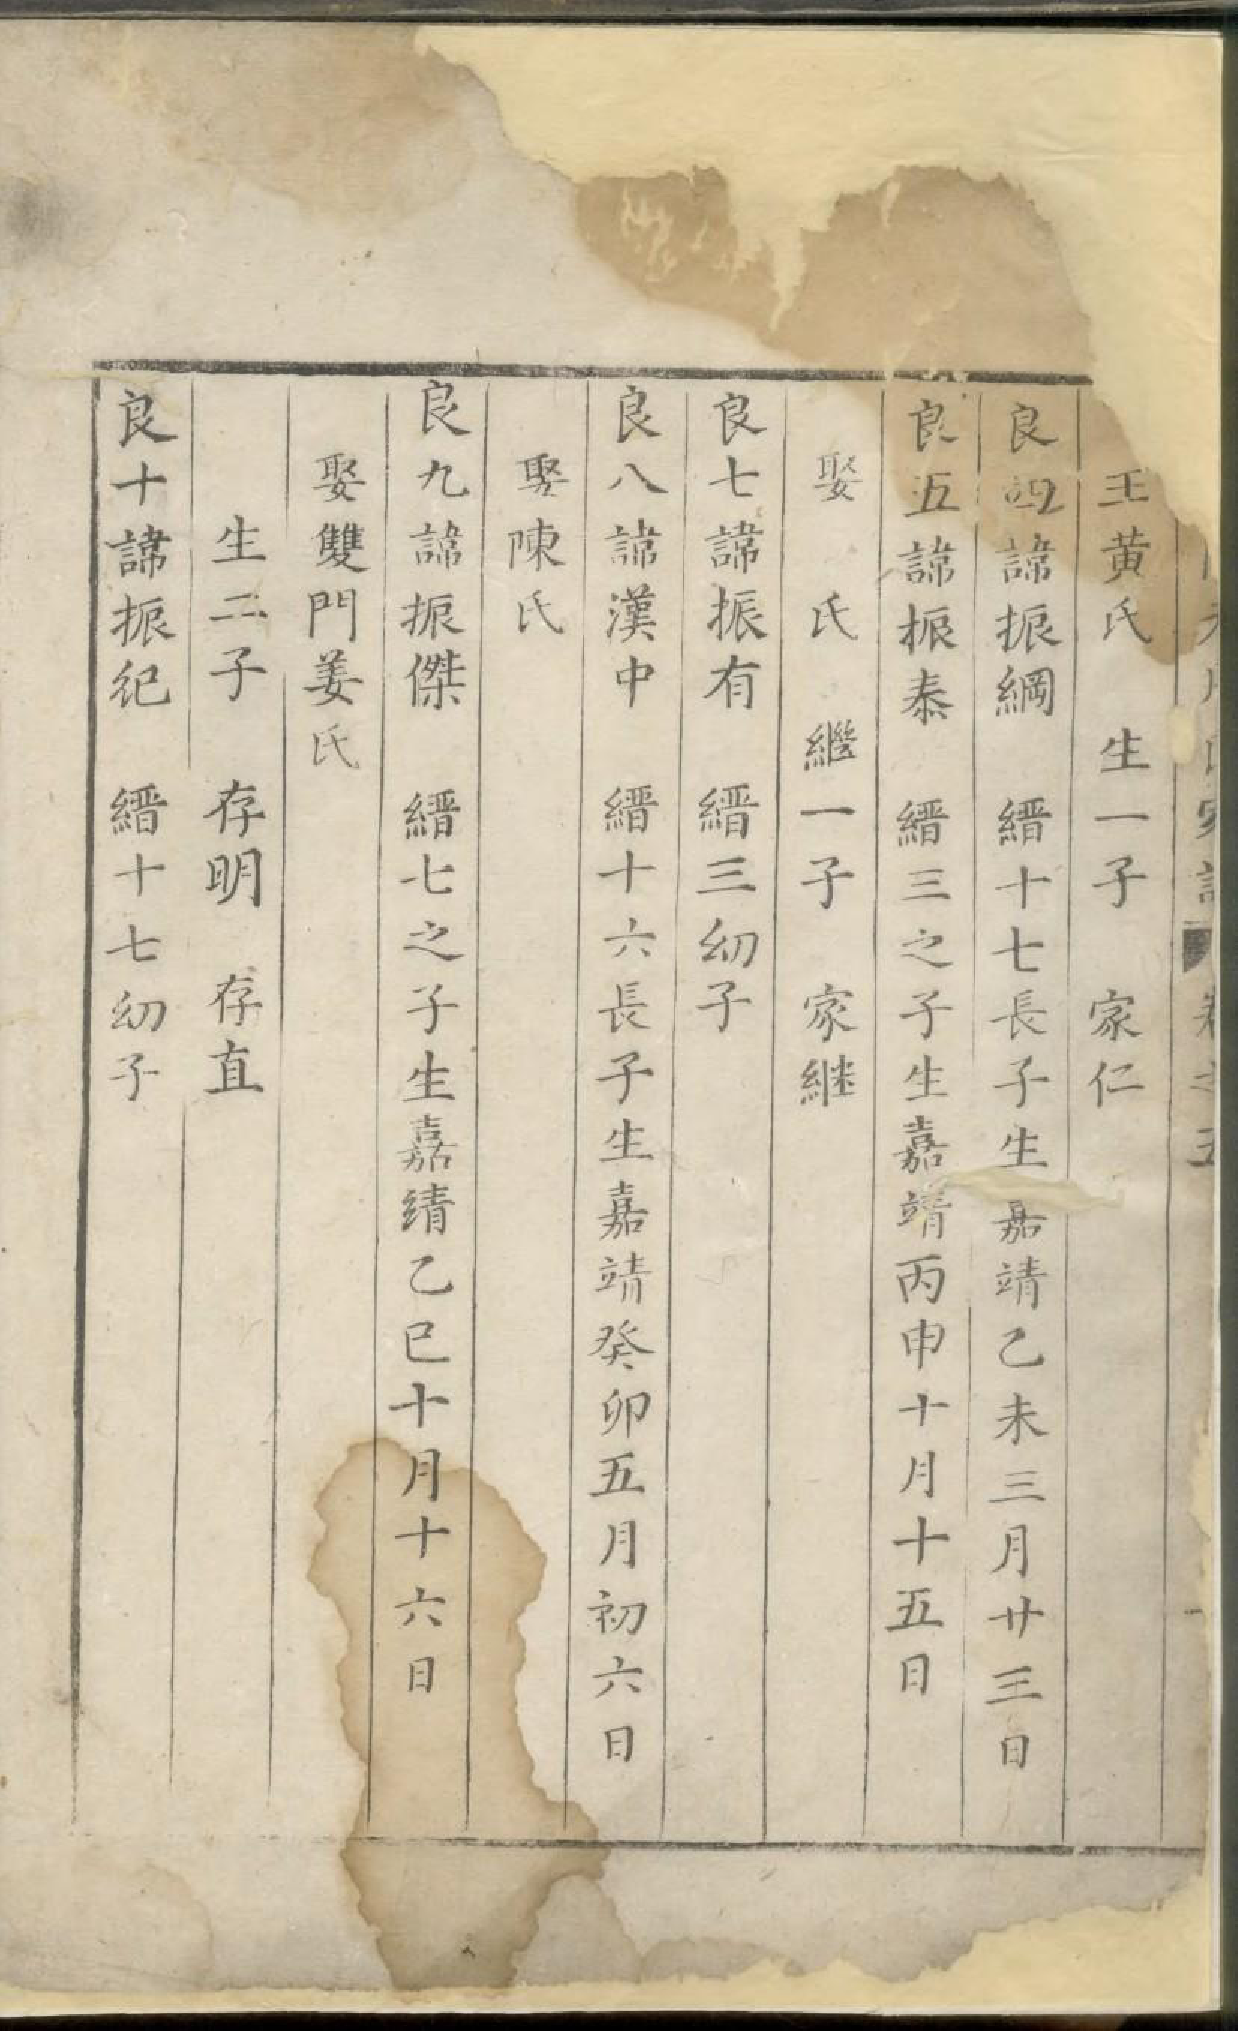 王黃氏 生一子 家仁
良四諱振綱 縉十七長子生嘉靖乙未三月廿三日
良五諱振泰 縉三之子生嘉靖丙申十月十五日
娶 氏 繼一子 家継
良七諱振有 縉三幼子
良八諱漢中 縉十六長子生嘉靖癸卯五月初六日
娶陳氏
良九諱振傑 縉七之子生嘉靖乙巳十月十六日
娶雙門姜氏
生二子 存明 存直
良十諱振紀 縉十七幼子